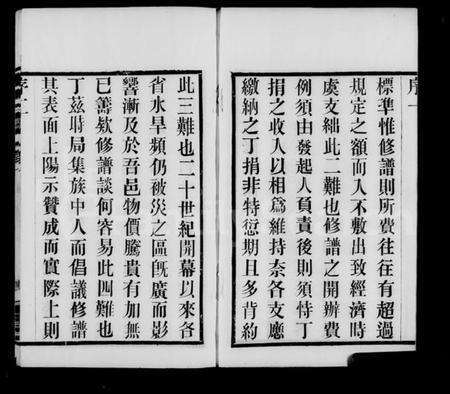 序一
標準惟修譜則所費往往有超過
規定之額而入不敷出致經濟時
虞支絀此二難也修譜之開辦費
例須由發起人負責後則須恃丁
捐之收入以相爲維持奈各支應
繳納之丁捐非特愆期且多背約
此三難也二十世紀開幕以來各
省水旱頻仍被災之區旣廣而影
響漸及於吾邑物價騰貴有加無
已籌欵修譜談何容易此四難也
丁茲時局集族中人而倡議修譜
其表面上陽示贊成而實際上則